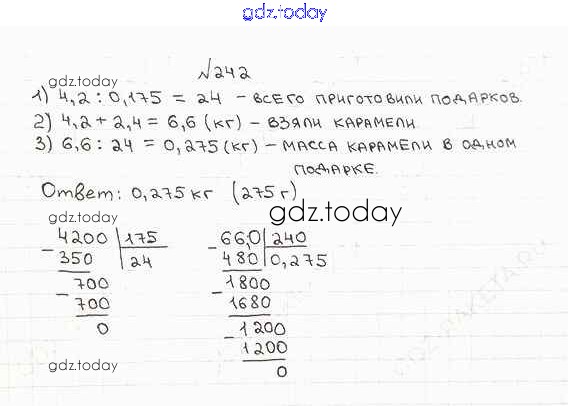 gdz.today
№242
gdz.today
1) 4,2 : 0,175 = 24 – ВСЕГО ПРИГОТОВИЛИ ПОДАРКОВ.
2) 4,2 + 2,4 = 6,6 (кг) – ВЗЯЛИ КАРАМЕЛИ.
3) 6,6 : 24 = 0,275 (кг) – МАССА КАРАМЕЛИ В ОДНОМ
ПОДАРКЕ.
Ответ: 0,275 кг (275 г)
gdz.today
gdz.today
4200 | 175
– 350 | 24
700
– 700
0
66,0 | 240
– 480 | 0,275
1800
– 1680
1200
– 1200
0
gdz.today
GDZ-RAKETA.RU